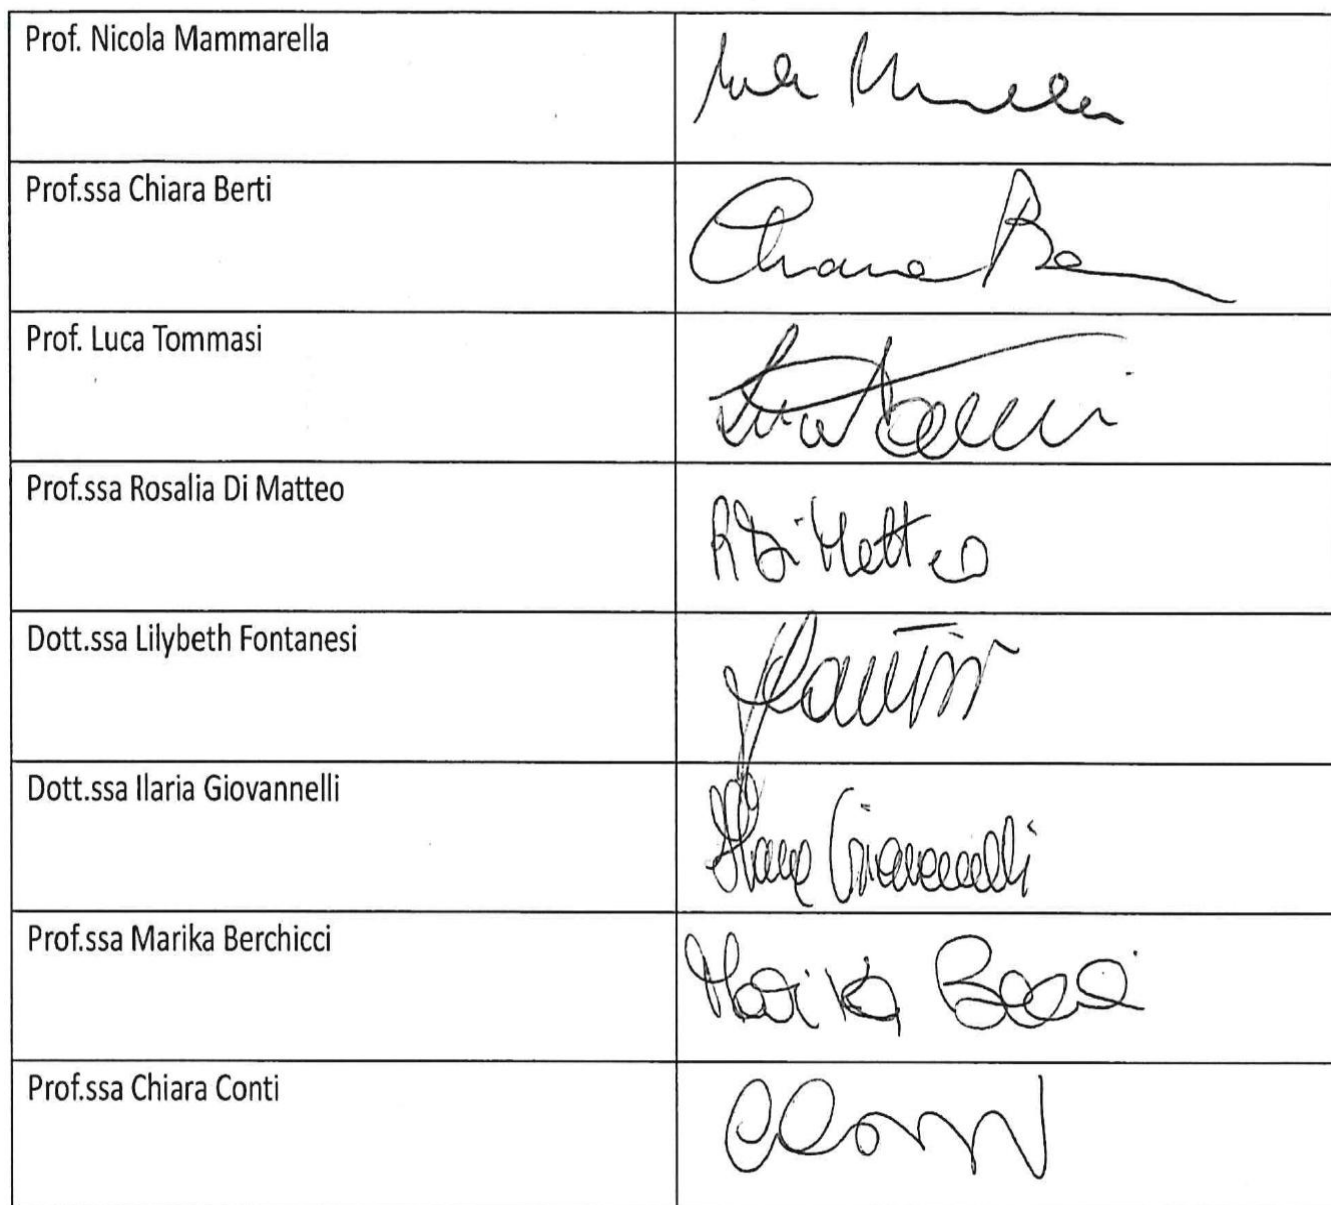 Prof. Nicola Mammarella
Prof.ssa Chiara Berti
Chiara Be
Prof. Luca Tommasi
Prof.ssa Rosalia Di Matteo
R Di Matteo
Dott.ssa Lilybeth Fontanesi
Dott.ssa Ilaria Giovannelli
Ilaria Giovannelli
Prof.ssa Marika Berchicci
Marika
Prof.ssa Chiara Conti